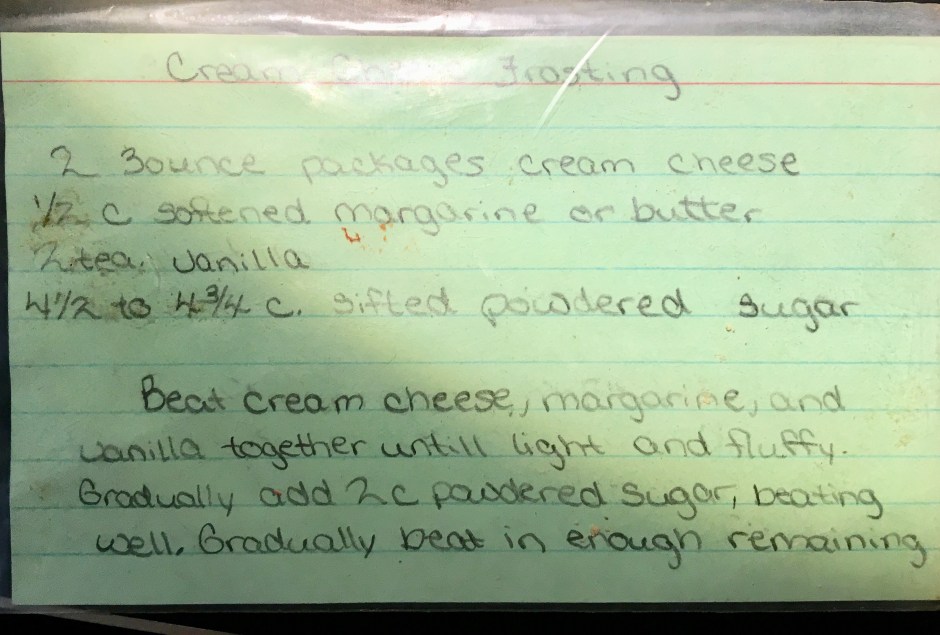 Cream Cheese Frosting
2 3ounce packages cream cheese
1/2 c softened margarine or butter
2 tea. vanilla
4 1/2 to 4 3/4 c. sifted powdered sugar
Beat cream cheese, margarine, and
vanilla together untill light and fluffy.
Gradually add 2c powdered sugar, beating
well. Gradually beat in enough remaining